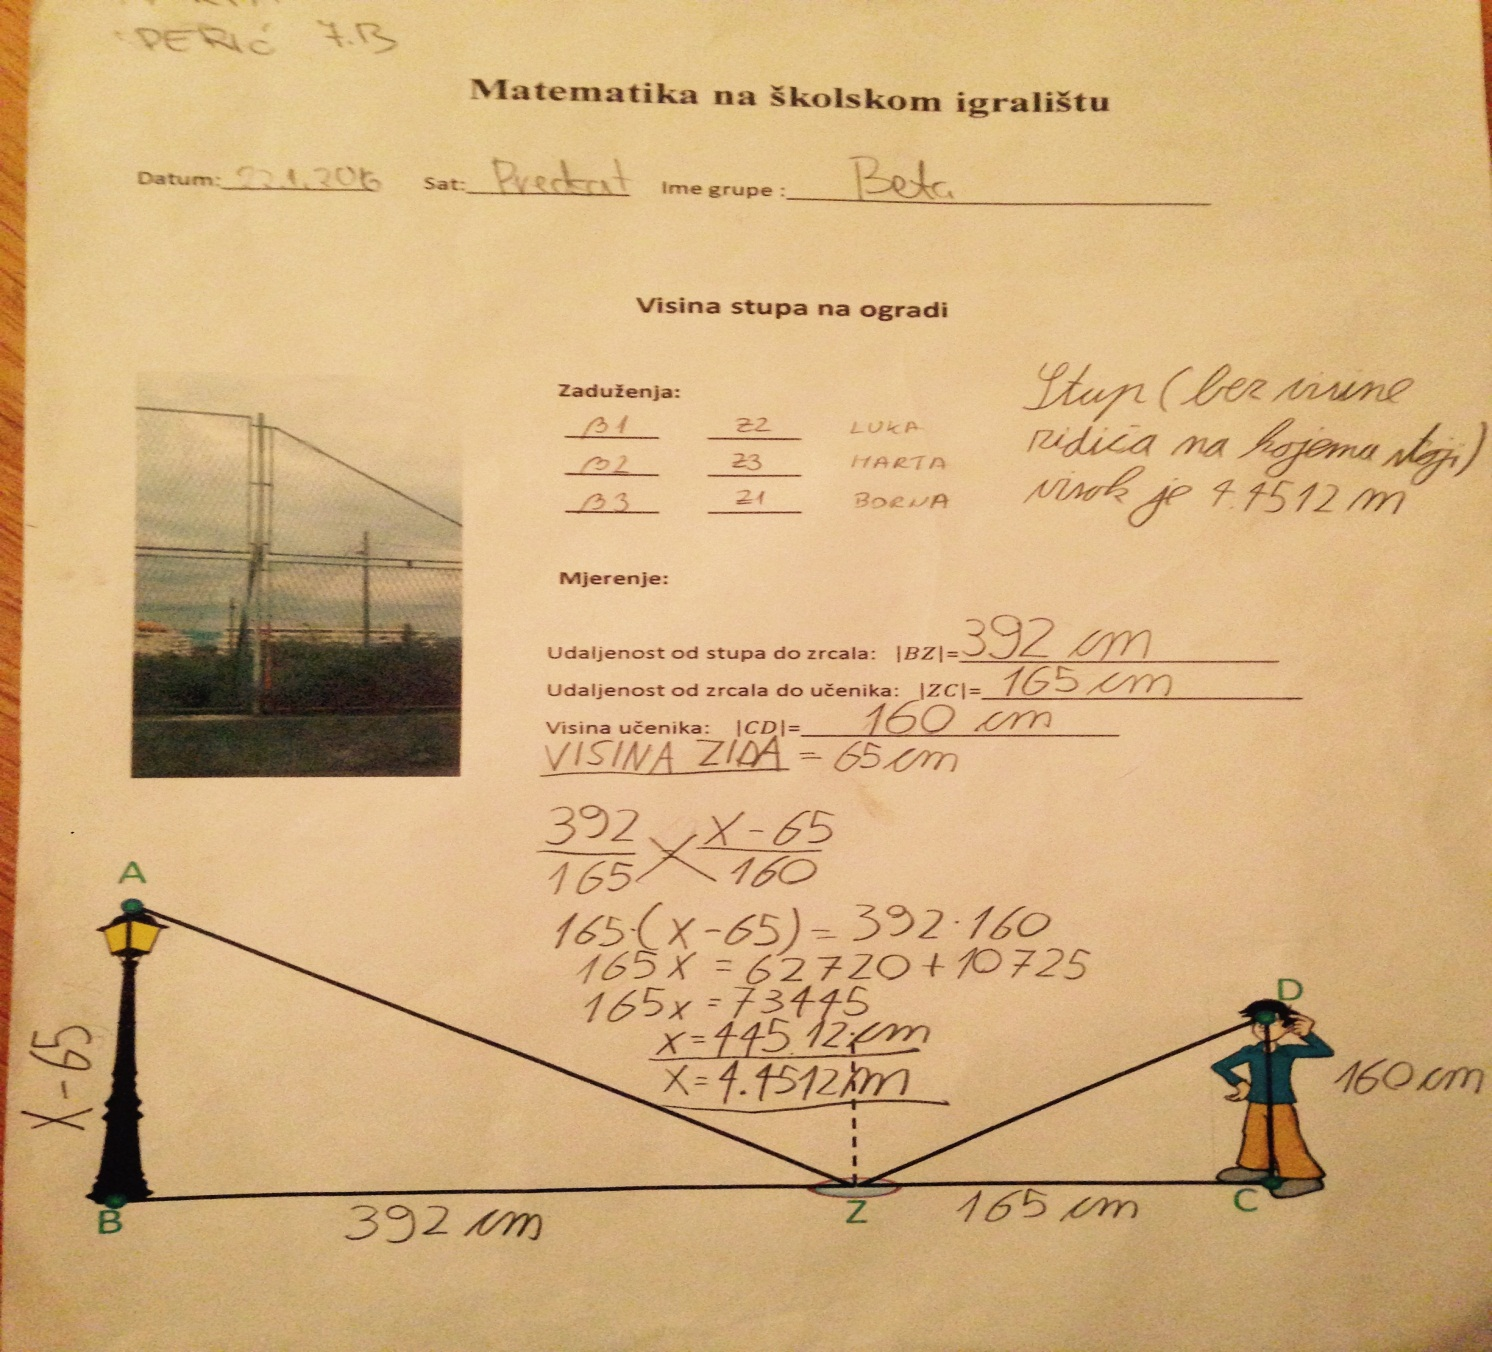 PERIĆ 7.B
Matematika na školskom igralištu
Datum: 22.1.2016 Sat: Predsat Ime grupe : Beta
Visina stupa na ogradi
Zaduženja:
B1 Z2 LUKA
B2 Z3 MARTA
B3 Z1 BORNA
Stup (bez visine
zidića na kojemu stoji)
visok je 4.4512 m
Mjerenje:
Udaljenost od stupa do zrcala: |BZ|= 392 cm
Udaljenost od zrcala do učenika: |ZC|= 165 cm
Visina učenika: |CD|= 160 cm
VISINA ZIDA = 65 cm
392 x-65
165 160
165·(x-65) = 392·160
165x = 62720+10725
165x = 73445
x = 445.12 cm
x = 4.4512 m
A
D
x-65
160 cm
B
Z
C
392 cm
165 cm